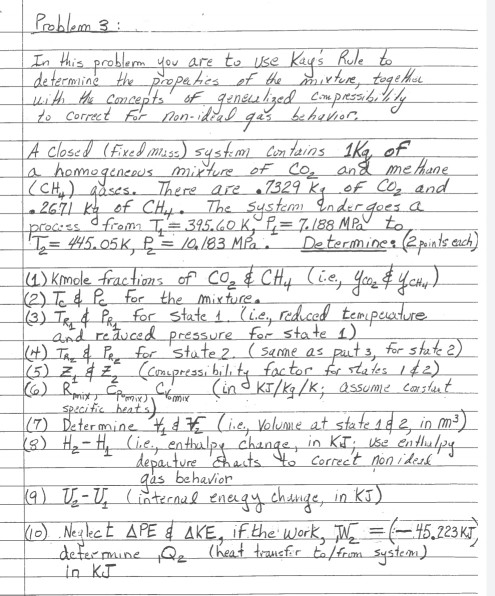 Problem 3:
In this problem you are to use Kay's Rule to
determine the properties of the mixture, together
with the concepts of generalized compressibility
to correct for non-ideal gas behavior.
A closed (fixed mass) system contains 1Kg of
a homogeneous mixture of CO₂ and methane
(CH₄) gases. There are .7329 Kg of CO₂ and
.2671 Kg of CH₄. The system undergoes a
process from T₁ = 395.60 K, P₁ = 7.188 MPa to
T₂ = 445.05K, P₂ = 10.183 MPa. Determine: (2 points each)
(1) Kmole fractions of CO₂ & CH₄ (i.e., y_CO₂ & y_CH₄)
(2) Tc & Pc for the mixture.
(3) T_R₁ & P_R₁ for state 1. (i.e., reduced temperature
and reduced pressure for state 1)
(4) T_R₂ & P_R₂ for state 2. (same as part 3, for state 2)
(5) Z₁ & Z₂ (compressibility factor for states 1 & 2)
(6) R_mix, C_Pomix, C_Vomix (in KJ/Kg/K; assume constant
specific heats)
(7) Determine V₁ & V₂ (i.e., volume at state 1 & 2, in m³)
(8) H₂-H₁ (i.e., enthalpy change, in KJ; use enthalpy
departure charts to correct non ideal
gas behavior
(9) U₂-U₁ (internal energy change, in KJ)
(10) Neglect ΔPE & ΔKE, if the work, ₁W₂ = (-45.223 KJ),
determine ₁Q₂ (heat transfer to/from system)
in KJ